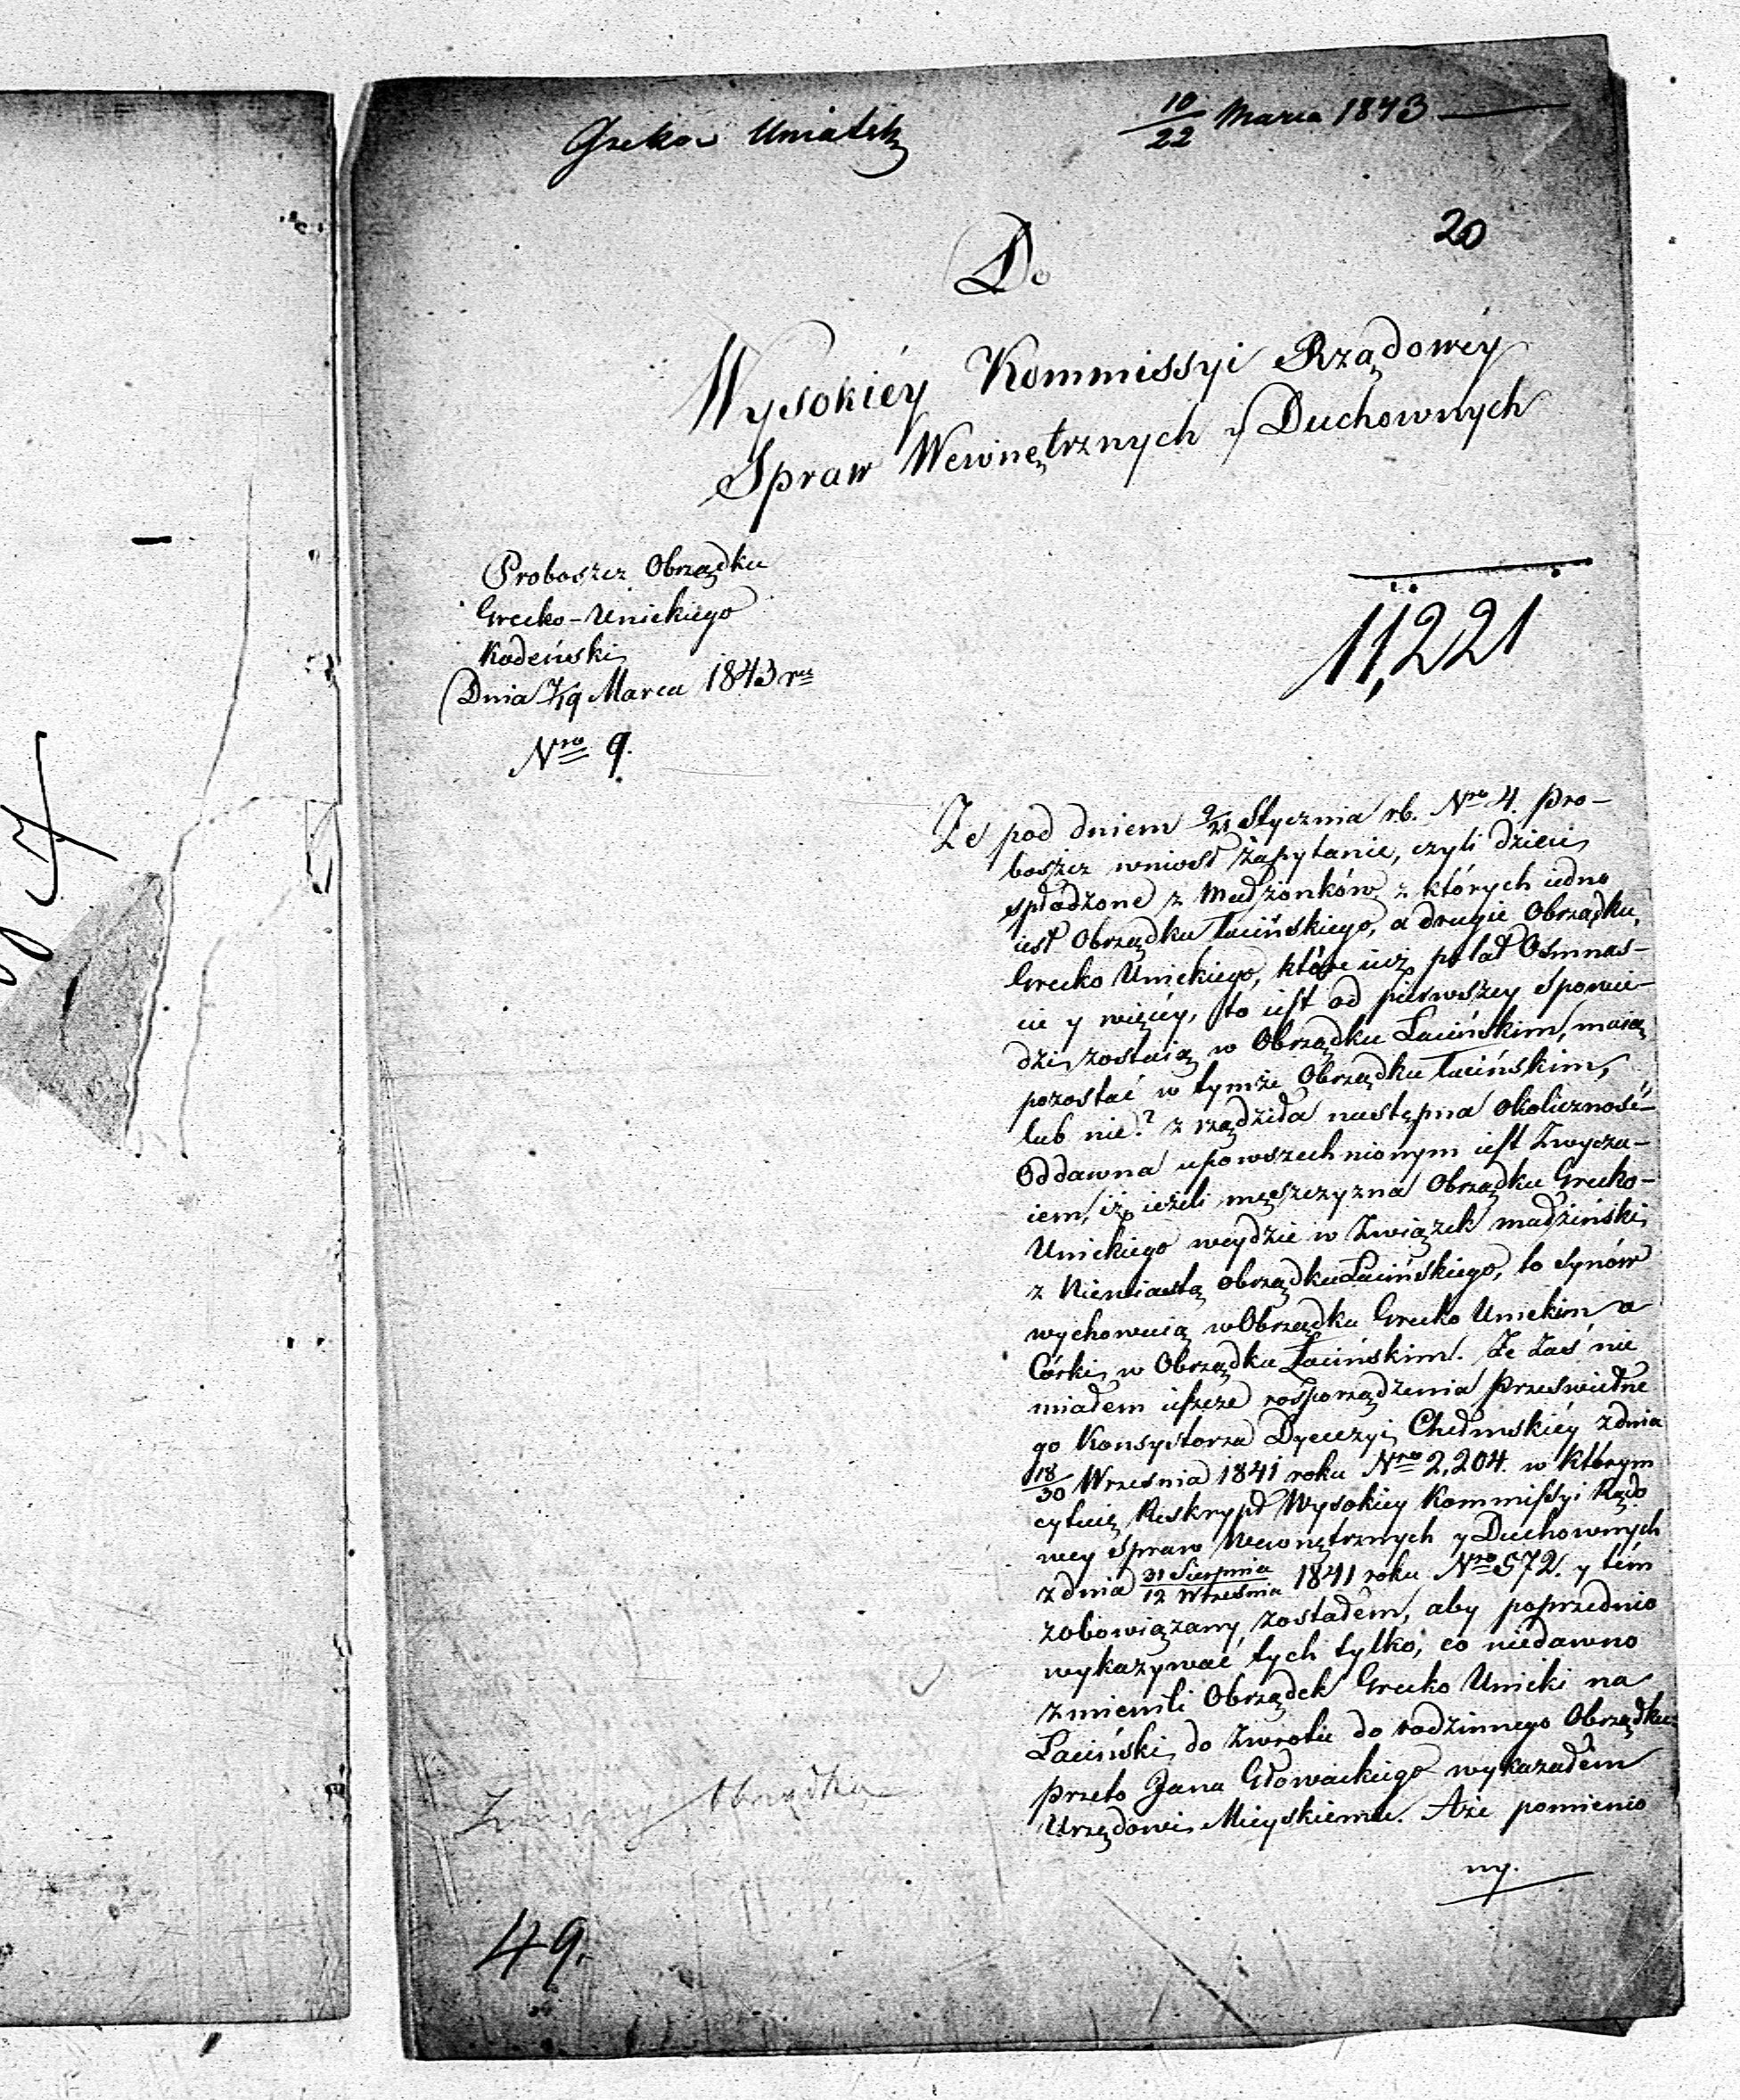 10/22 Marca 1843
20
Do
Wysokiéy Kommissyi Rządowéy
Spraw Wewnętrznych y Duchownych
Proboszcz Obrządku
Grecko-Unickiego
Kodeński
Dnia 7/19 Marca 1843 r.
Nro 9.
11,221
Że pod dniem 9/21 Stycznia rb. Nro 4. Pro-
boszcz wniosł zapytanie, czyli dzieci
spłodzone z Małżonków z których iedno
iest Obrządku Łacińskiego, a drugie Obrządku
Grecko Unickiego, które iuż po lat Osmnas-
cie y więcéy, to iest od pierwszey spowie-
dzi zostaią w Obrządku Łacińskim, maią
pozostać w tymże Obrządku Łacińskim,
lub nie? zrządziła następna okoliczność
Oddawna upowszechnionym iest Zwycza-
iem, iż ieżeli męszczyzna Obrządku Grecko-
Unickiego weydzie w Związek małżeński
z Niewiastą obrządku Łacińskiego, to Synów
wychowuią w Obrządku Grecko Unickim a
Córki w Obrządku Łacińskim. Że zaś nie
miałem ieszcze rosporządzenia Prześwietne
go Konsystorza Dyecezyi Chełmskiéy z dnia
18/30 Września 1841 roku Nro 2,204. w którym
cytuię Reskrypt Wysokiey Kommissyi Rządo
wey Spraw Wewnętrznych y Duchownych
z dnia 31 Sierpnia/12 Września 1841 roku Nro 572. y tém
zobowiązany zostałem, aby poprzednio
wykazywać tych tylko, co niedawno
zmienili Obrządek Grecko Unicki na
Łaciński do Zwrotu do rodzinnego Obrządku
przeto Jana Głowackiego wykazałem
Urzędowi Mieyskiemu. Aże pomienio
ny.
Obrządku
49.